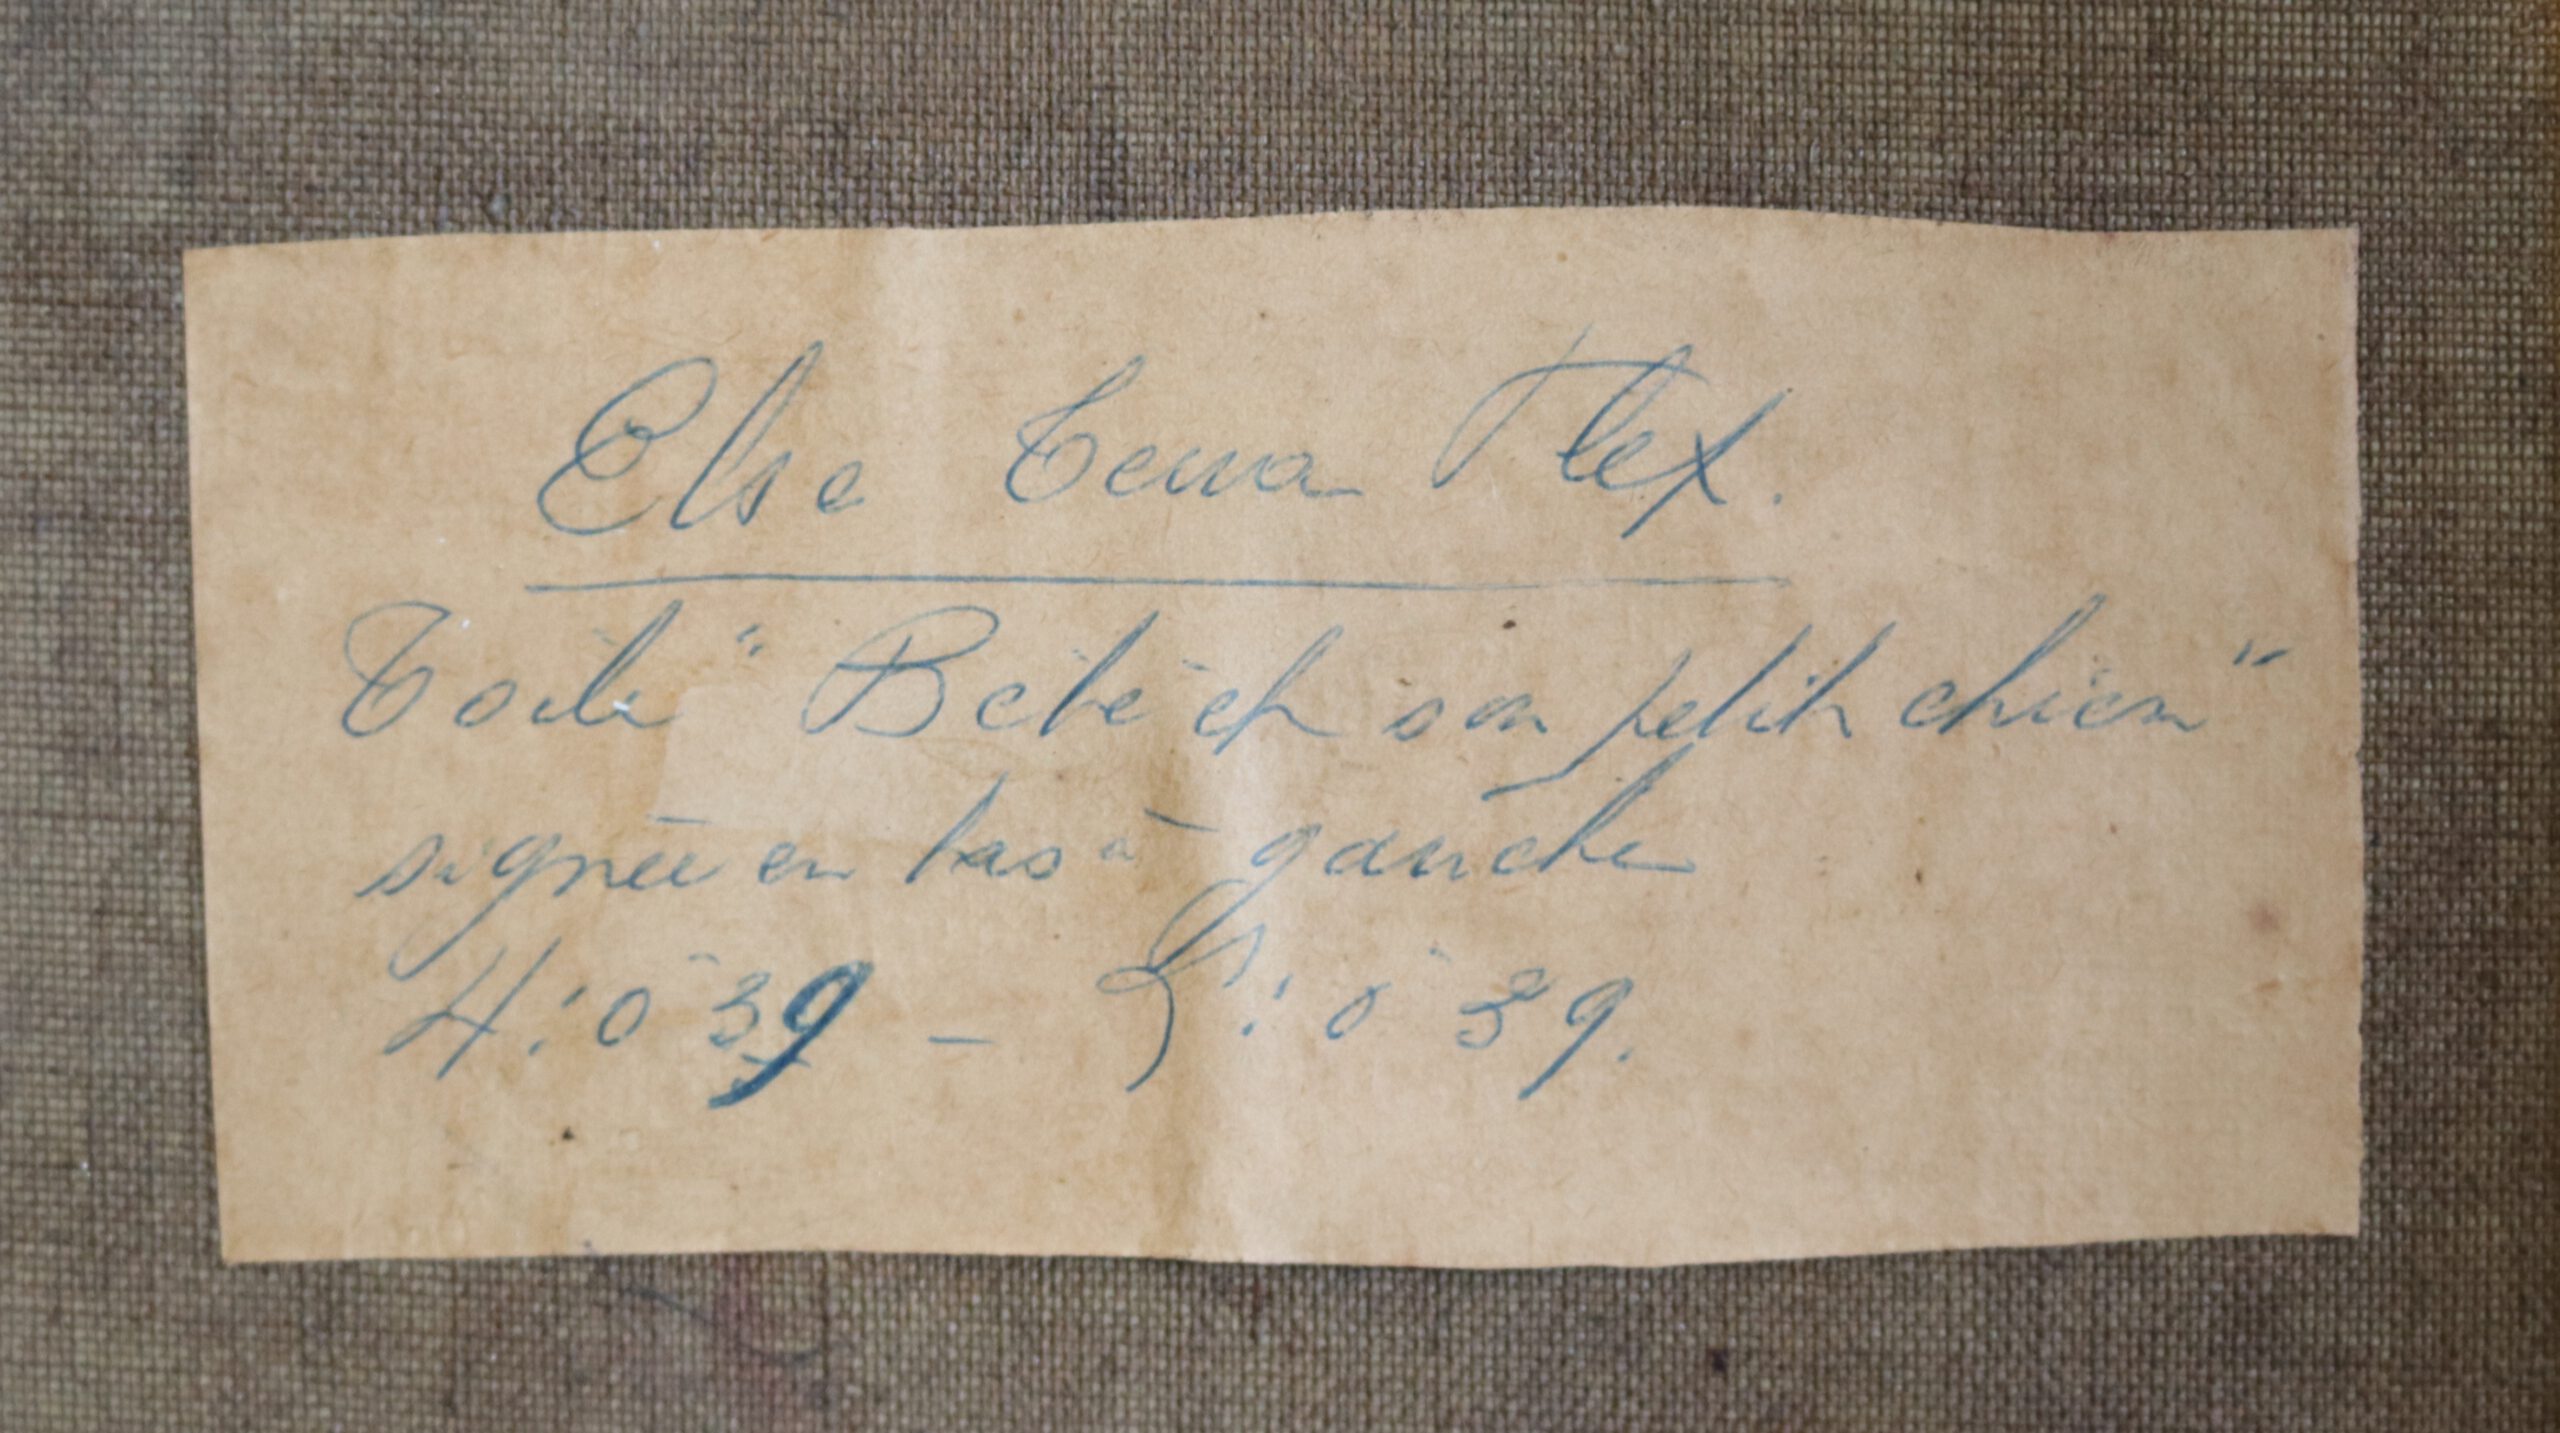 Else Tenna Flex.
Toile "Bébé et son petit chien"
signée en bas à gauche
H: 0 39 - L: 0 39.